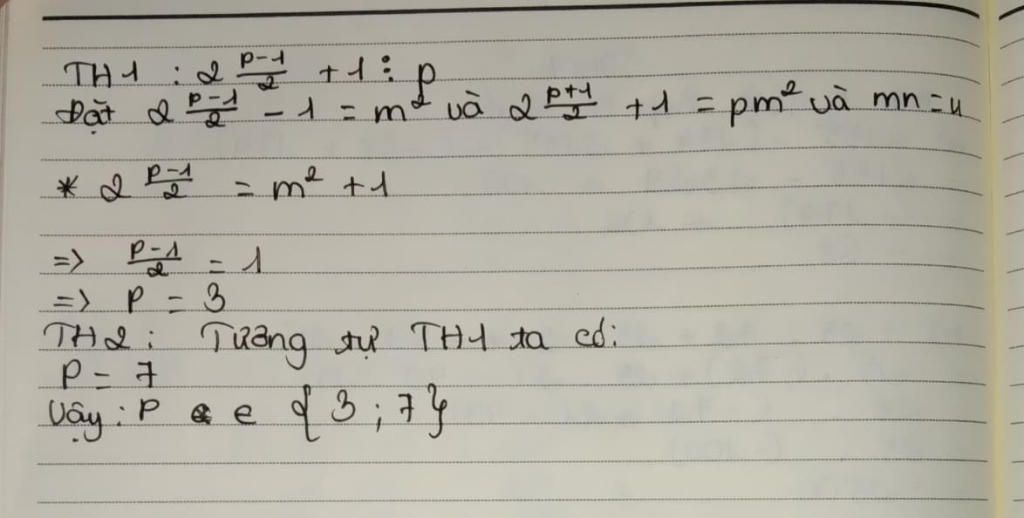 TH1 : 2^{\frac{p-1}{2}} + 1 ⋮ p
Đặt 2^{\frac{p-1}{2}} - 1 = m² và 2^{\frac{p+1}{2}} + 1 = pm² và mn = u
* 2^{\frac{p-1}{2}} = m² + 1
=> \frac{p-1}{2} = 1
=> p = 3
TH2 : Tương tự TH1 ta có:
P = 7
Vậy : P e {3 ; 7}